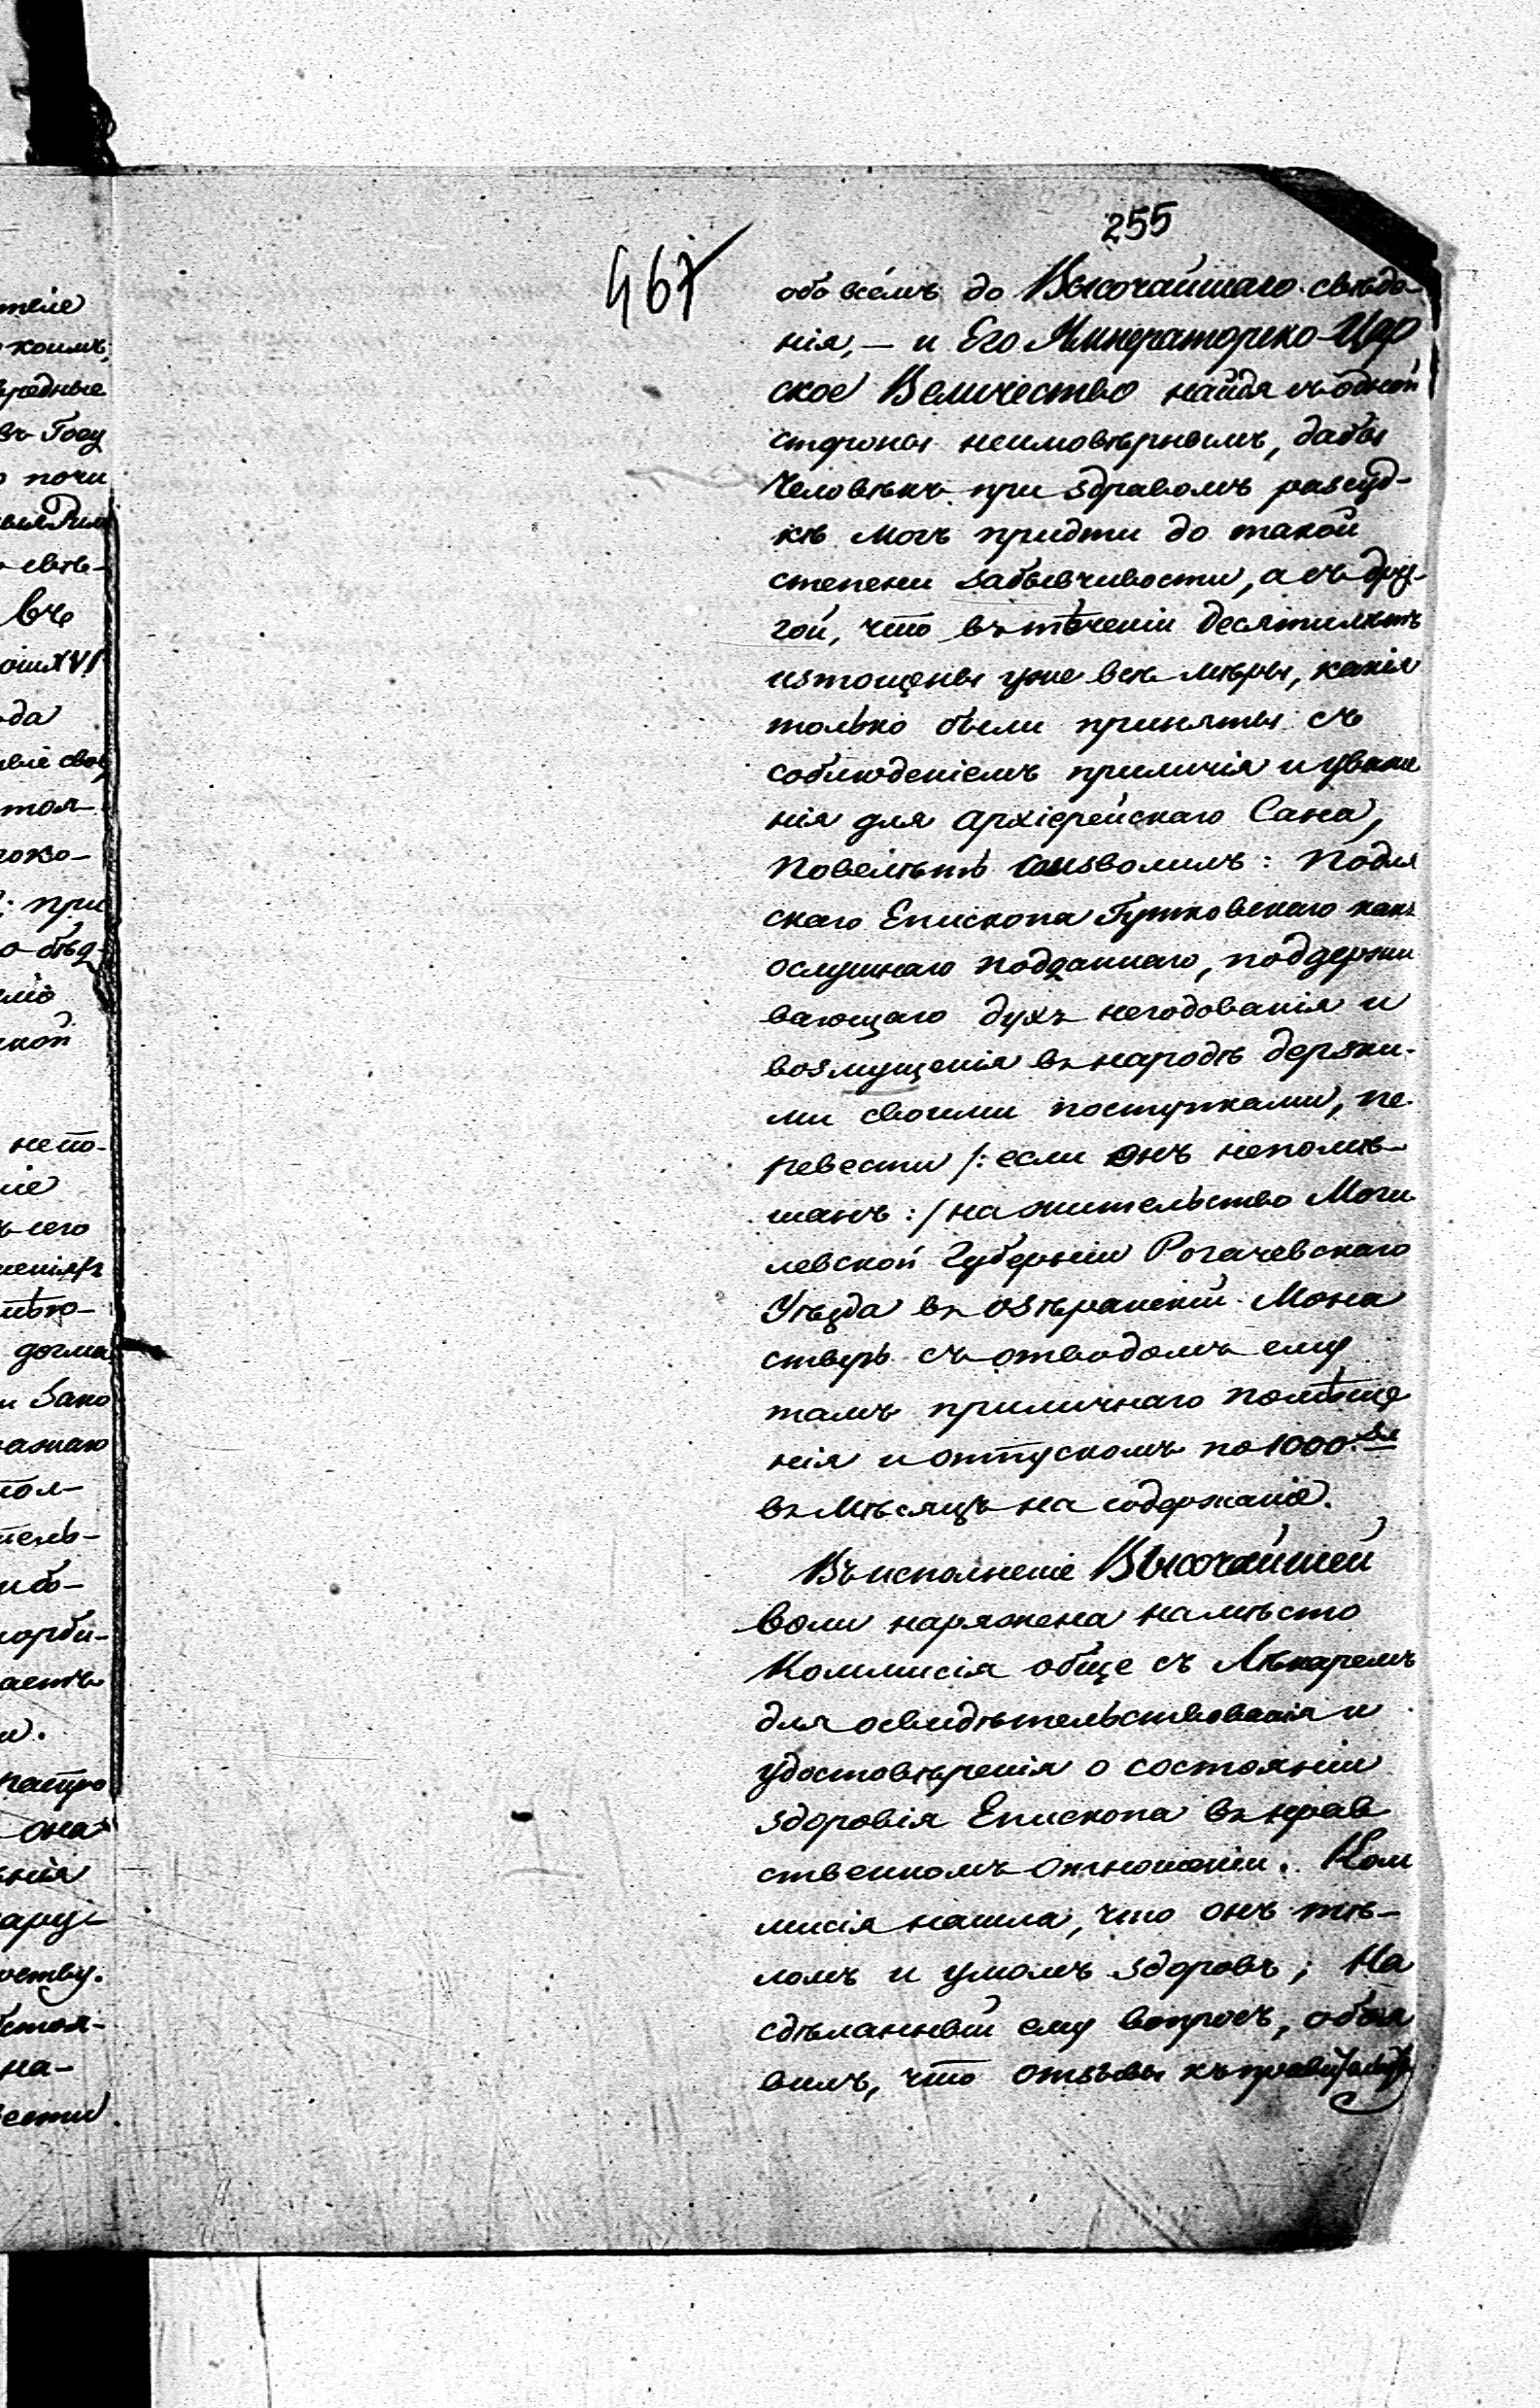 255
467
обо всемъ до Высочайшаго свѣдѣ-
нія, — и Его Императорско-Цар
ское Величество найдя съ одной
стороны неимовѣрнымъ, дабы
человѣкъ при здравомъ разсуд-
кѣ могъ придти до такой
степени забывчивости, а съ дру-
гой, что въ теченіи десяти лѣтъ
изтощены уже всѣ мѣры, какія
только были приняты съ
соблюденіемъ приличія и уваже
нія для Архіерейскаго Сана,
повелѣть соизволилъ: Подля
скаго Епископа Гутковскаго какъ
ослушнаго подданнаго, поддержи
вающаго духъ негодованія и
возмущенія въ народѣ дерзки-
ми своими поступками, пе
ревести /: если онъ непомѣ-
шанъ :/ на жительство Моги
левской Губерніи Рогачевскаго
Уѣзда въ Озѣранскій Мона
стырь съ отводомъ ему
тамъ приличнаго помѣще
нія и отпускомъ по 1000
въ мѣсяцъ на содержаніе.
Въ исполненіе Высочайшей
воли наряжена на мѣсто
Коммисія обще съ Лѣкаремъ
для освидѣтельствованія и
удостовѣренія о состояніи
здоровія Епископа въ нрав
ственномъ отношеніи. Ком
мисія нашла, что онъ тѣ-
ломъ и умомъ здоровъ; На
сдѣланный ему вопросъ, объя
вилъ, что отзывы къ
тело
коимъ
вредные
въ Госу
почи
свѣ-
въ
XVI
да
тоя
око-
при
кой
непо-
ніе
сего
догма
и Зако
пол-
тель-
аетъ
и.
она
нія
ару-
на-